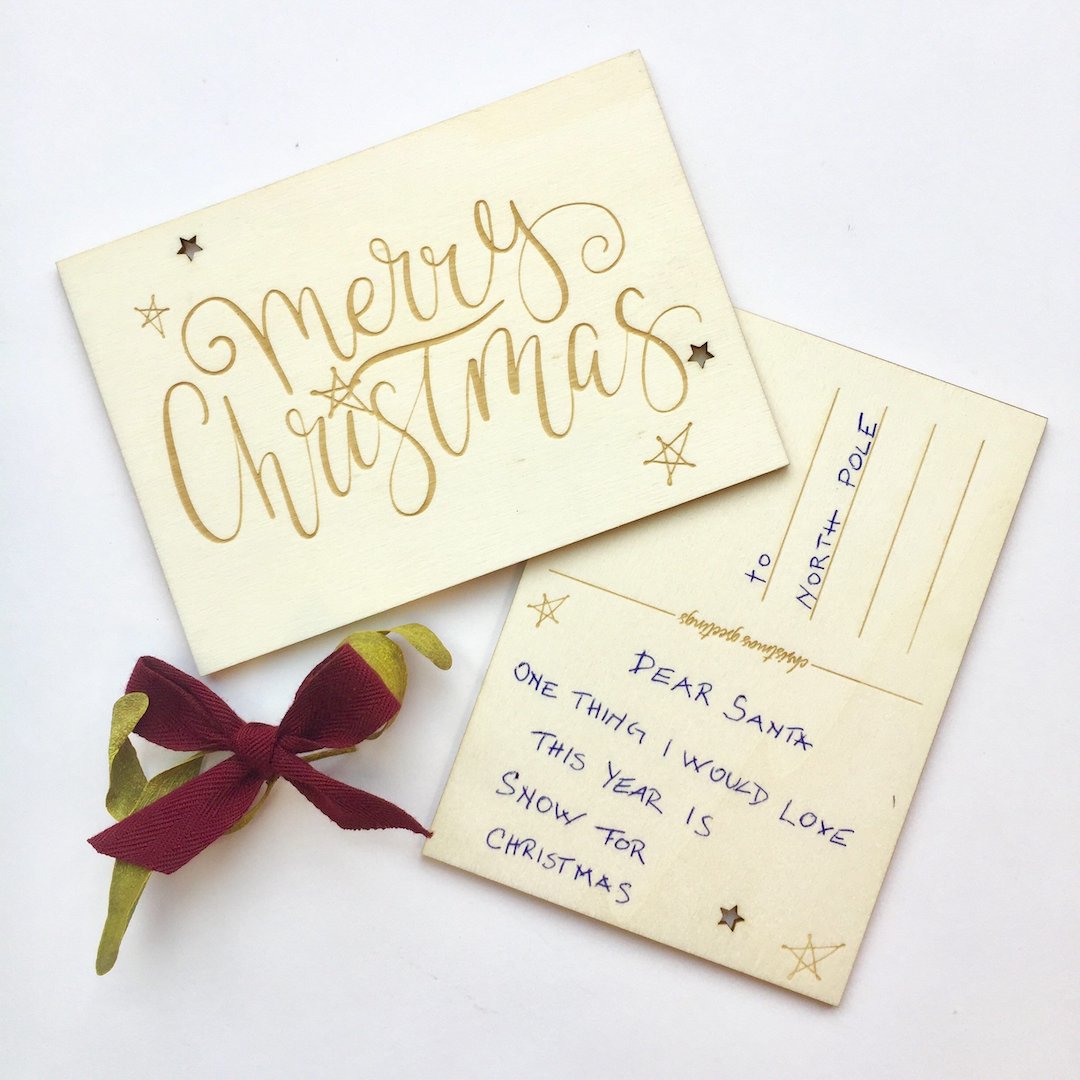 merry
Christmas
to
NORTH POLE
christmas greetings
DEAR SANTA
ONE THING I WOULD LOVE
THIS YEAR IS
SNOW FOR
CHRISTMAS